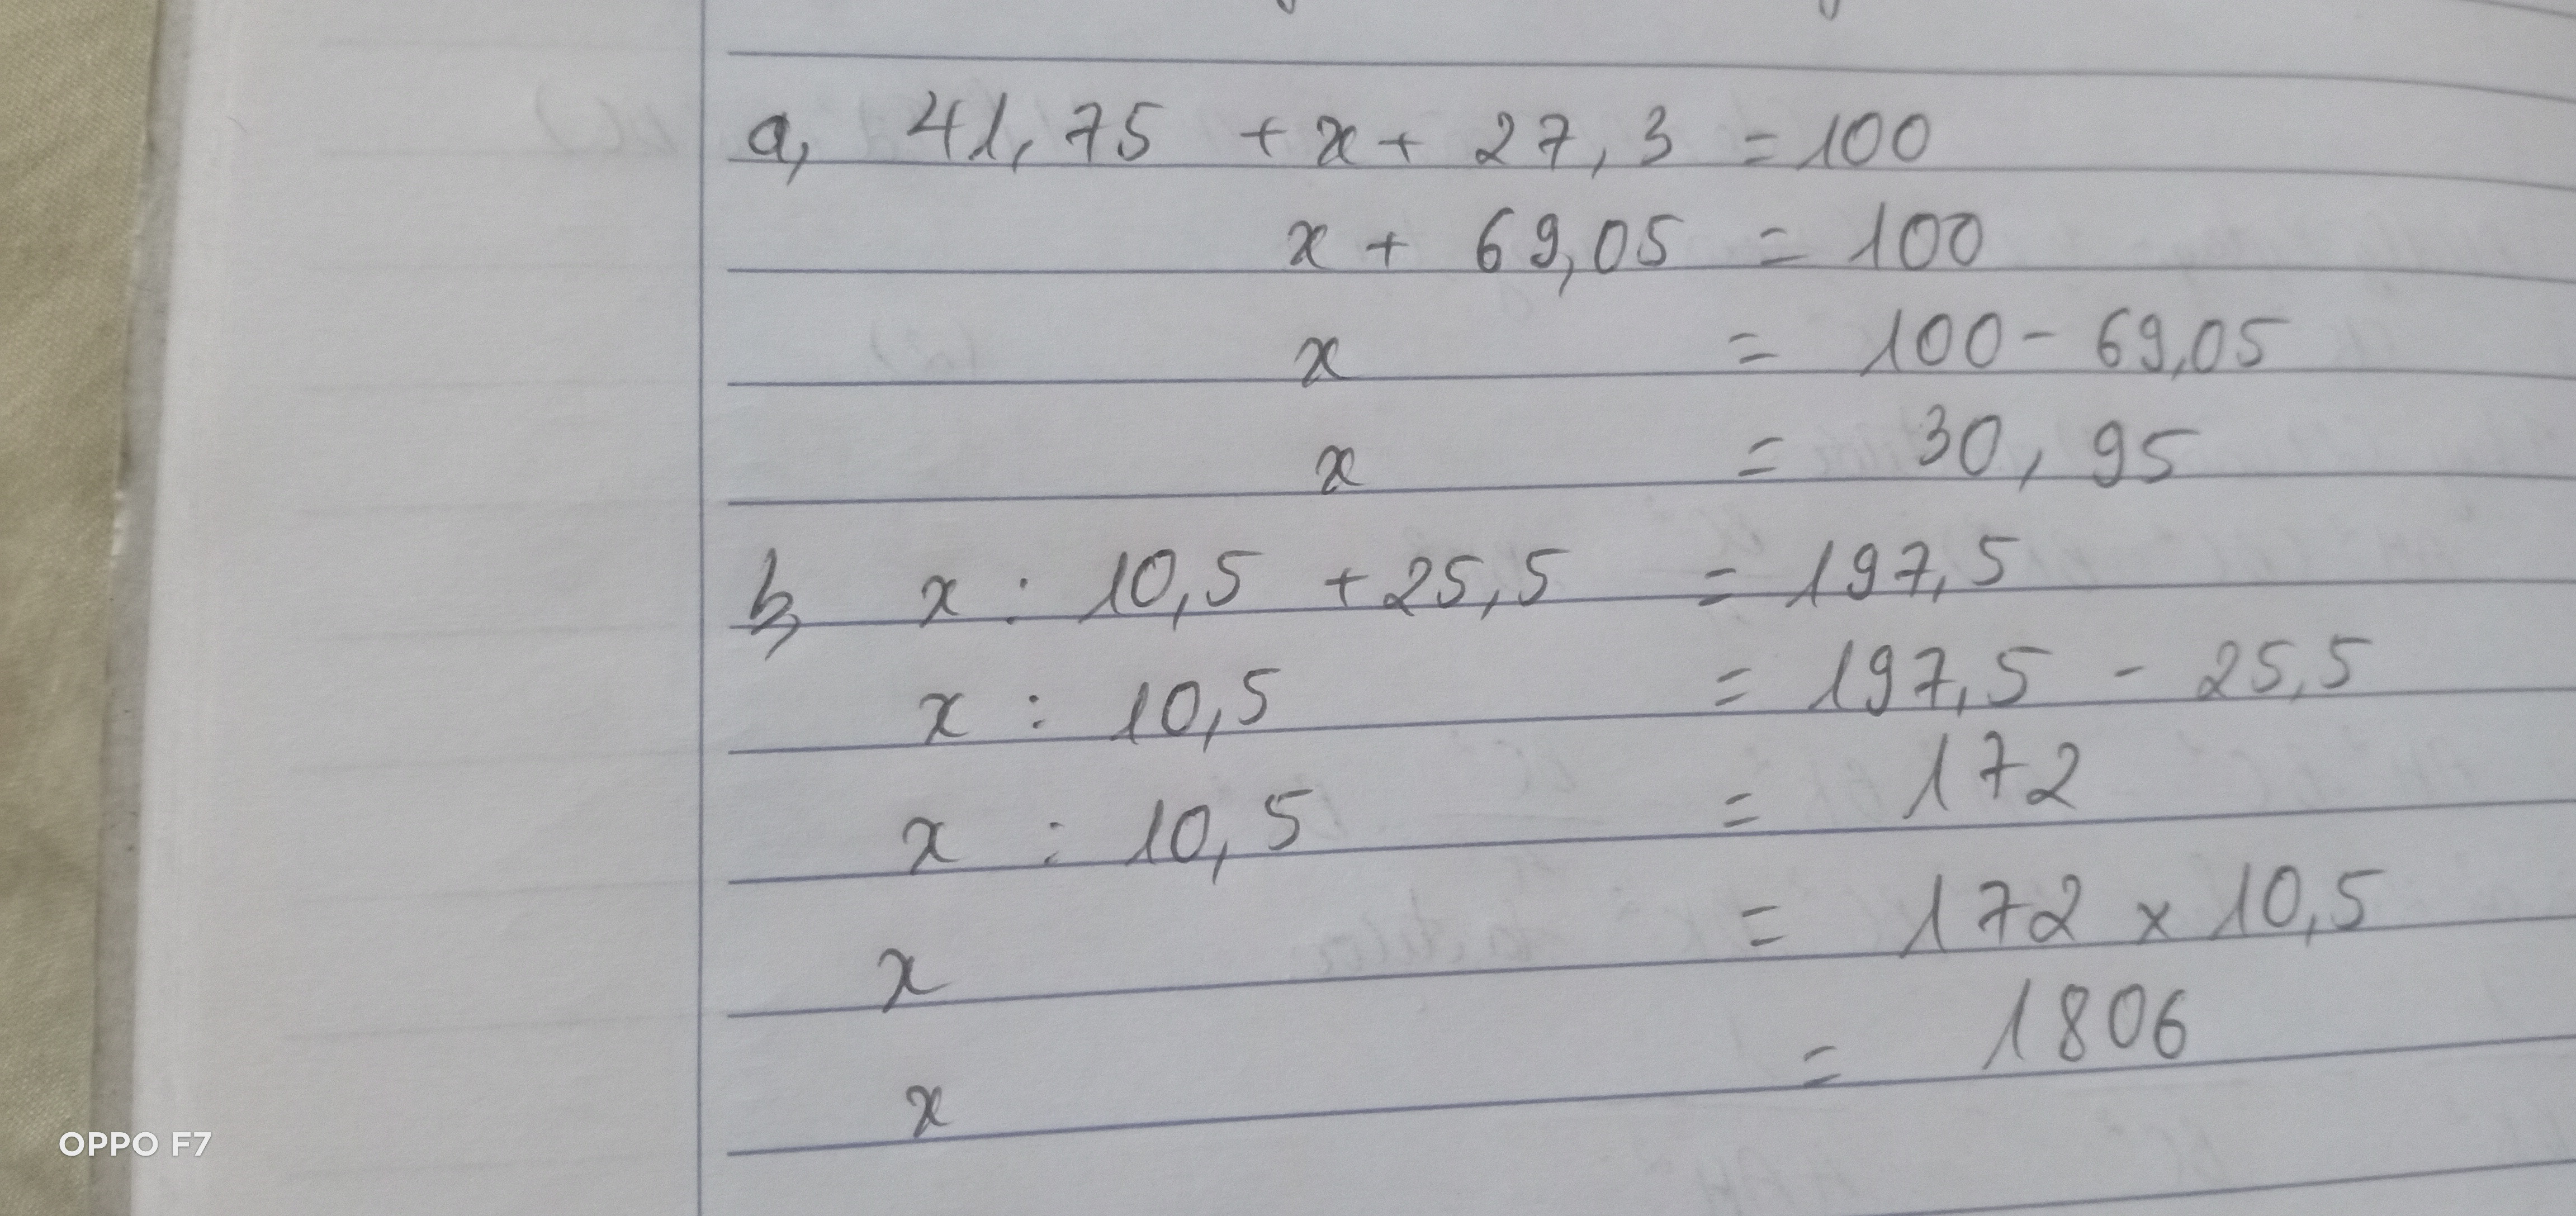 a, 41,75 + x + 27,3 = 100
x + 69,05 = 100
x = 100 - 69,05
x = 30,95
b, x : 10,5 + 25,5 = 197,5
x : 10,5 = 197,5 - 25,5
x : 10,5 = 172
x = 172 x 10,5
x = 1806
OPPO F7